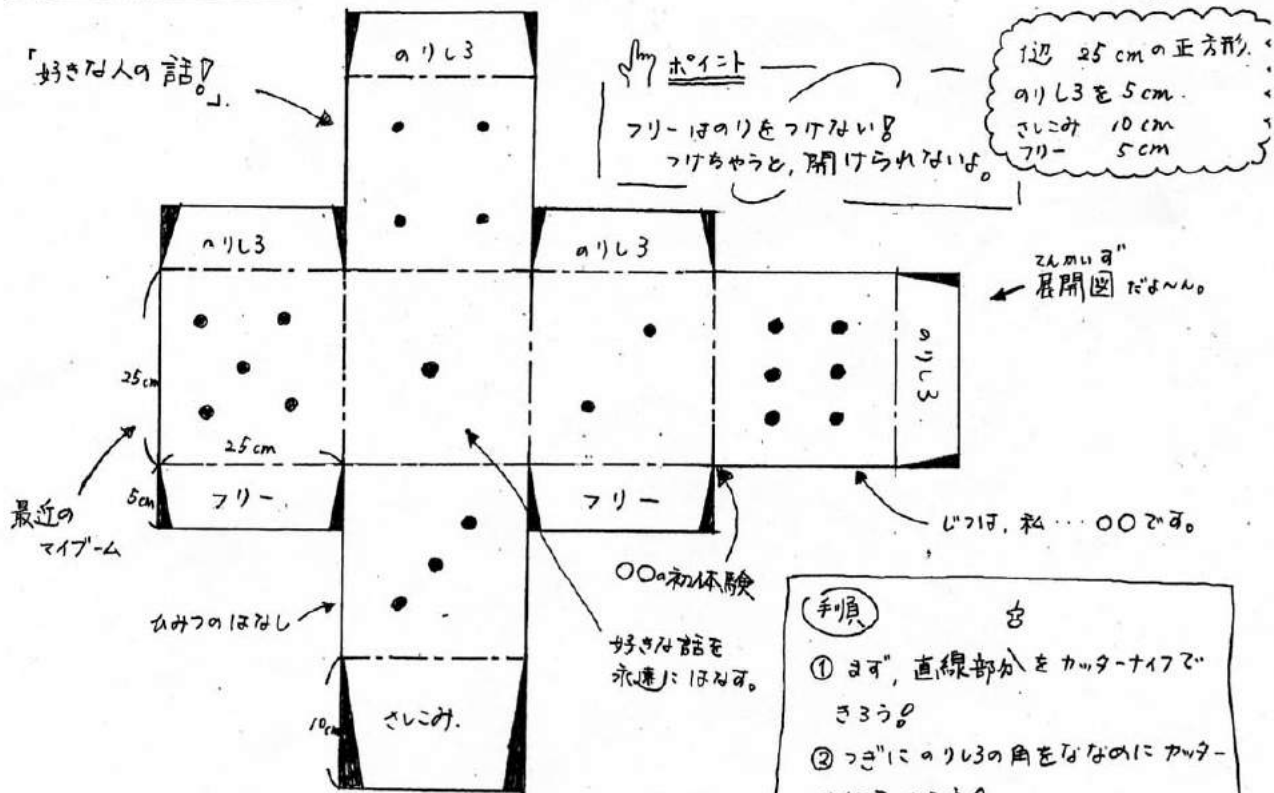 のりしろ
「好きな人の話!」
ポイント
フリーはのりをつけない!
つけちゃうと、開けられないよ。
1辺 25cmの正方形.
のりしろを5cm.
さしこみ 10cm
フリー 5cm
のりしろ
のりしろ
てんかいず
展開図だよ〜ん。
のりしろ
25cm
25cm
5cm
フリー
フリー
最近の
マイブーム
ひみつのはなし
〇〇の初体験
じつは、私…〇〇です。
好きな話を
永遠にはなす。
10cm
さしこみ.
手順
① まず、直線部分をカッターナイフで
きろう!
② つぎにのりしろの角をななめにカッター